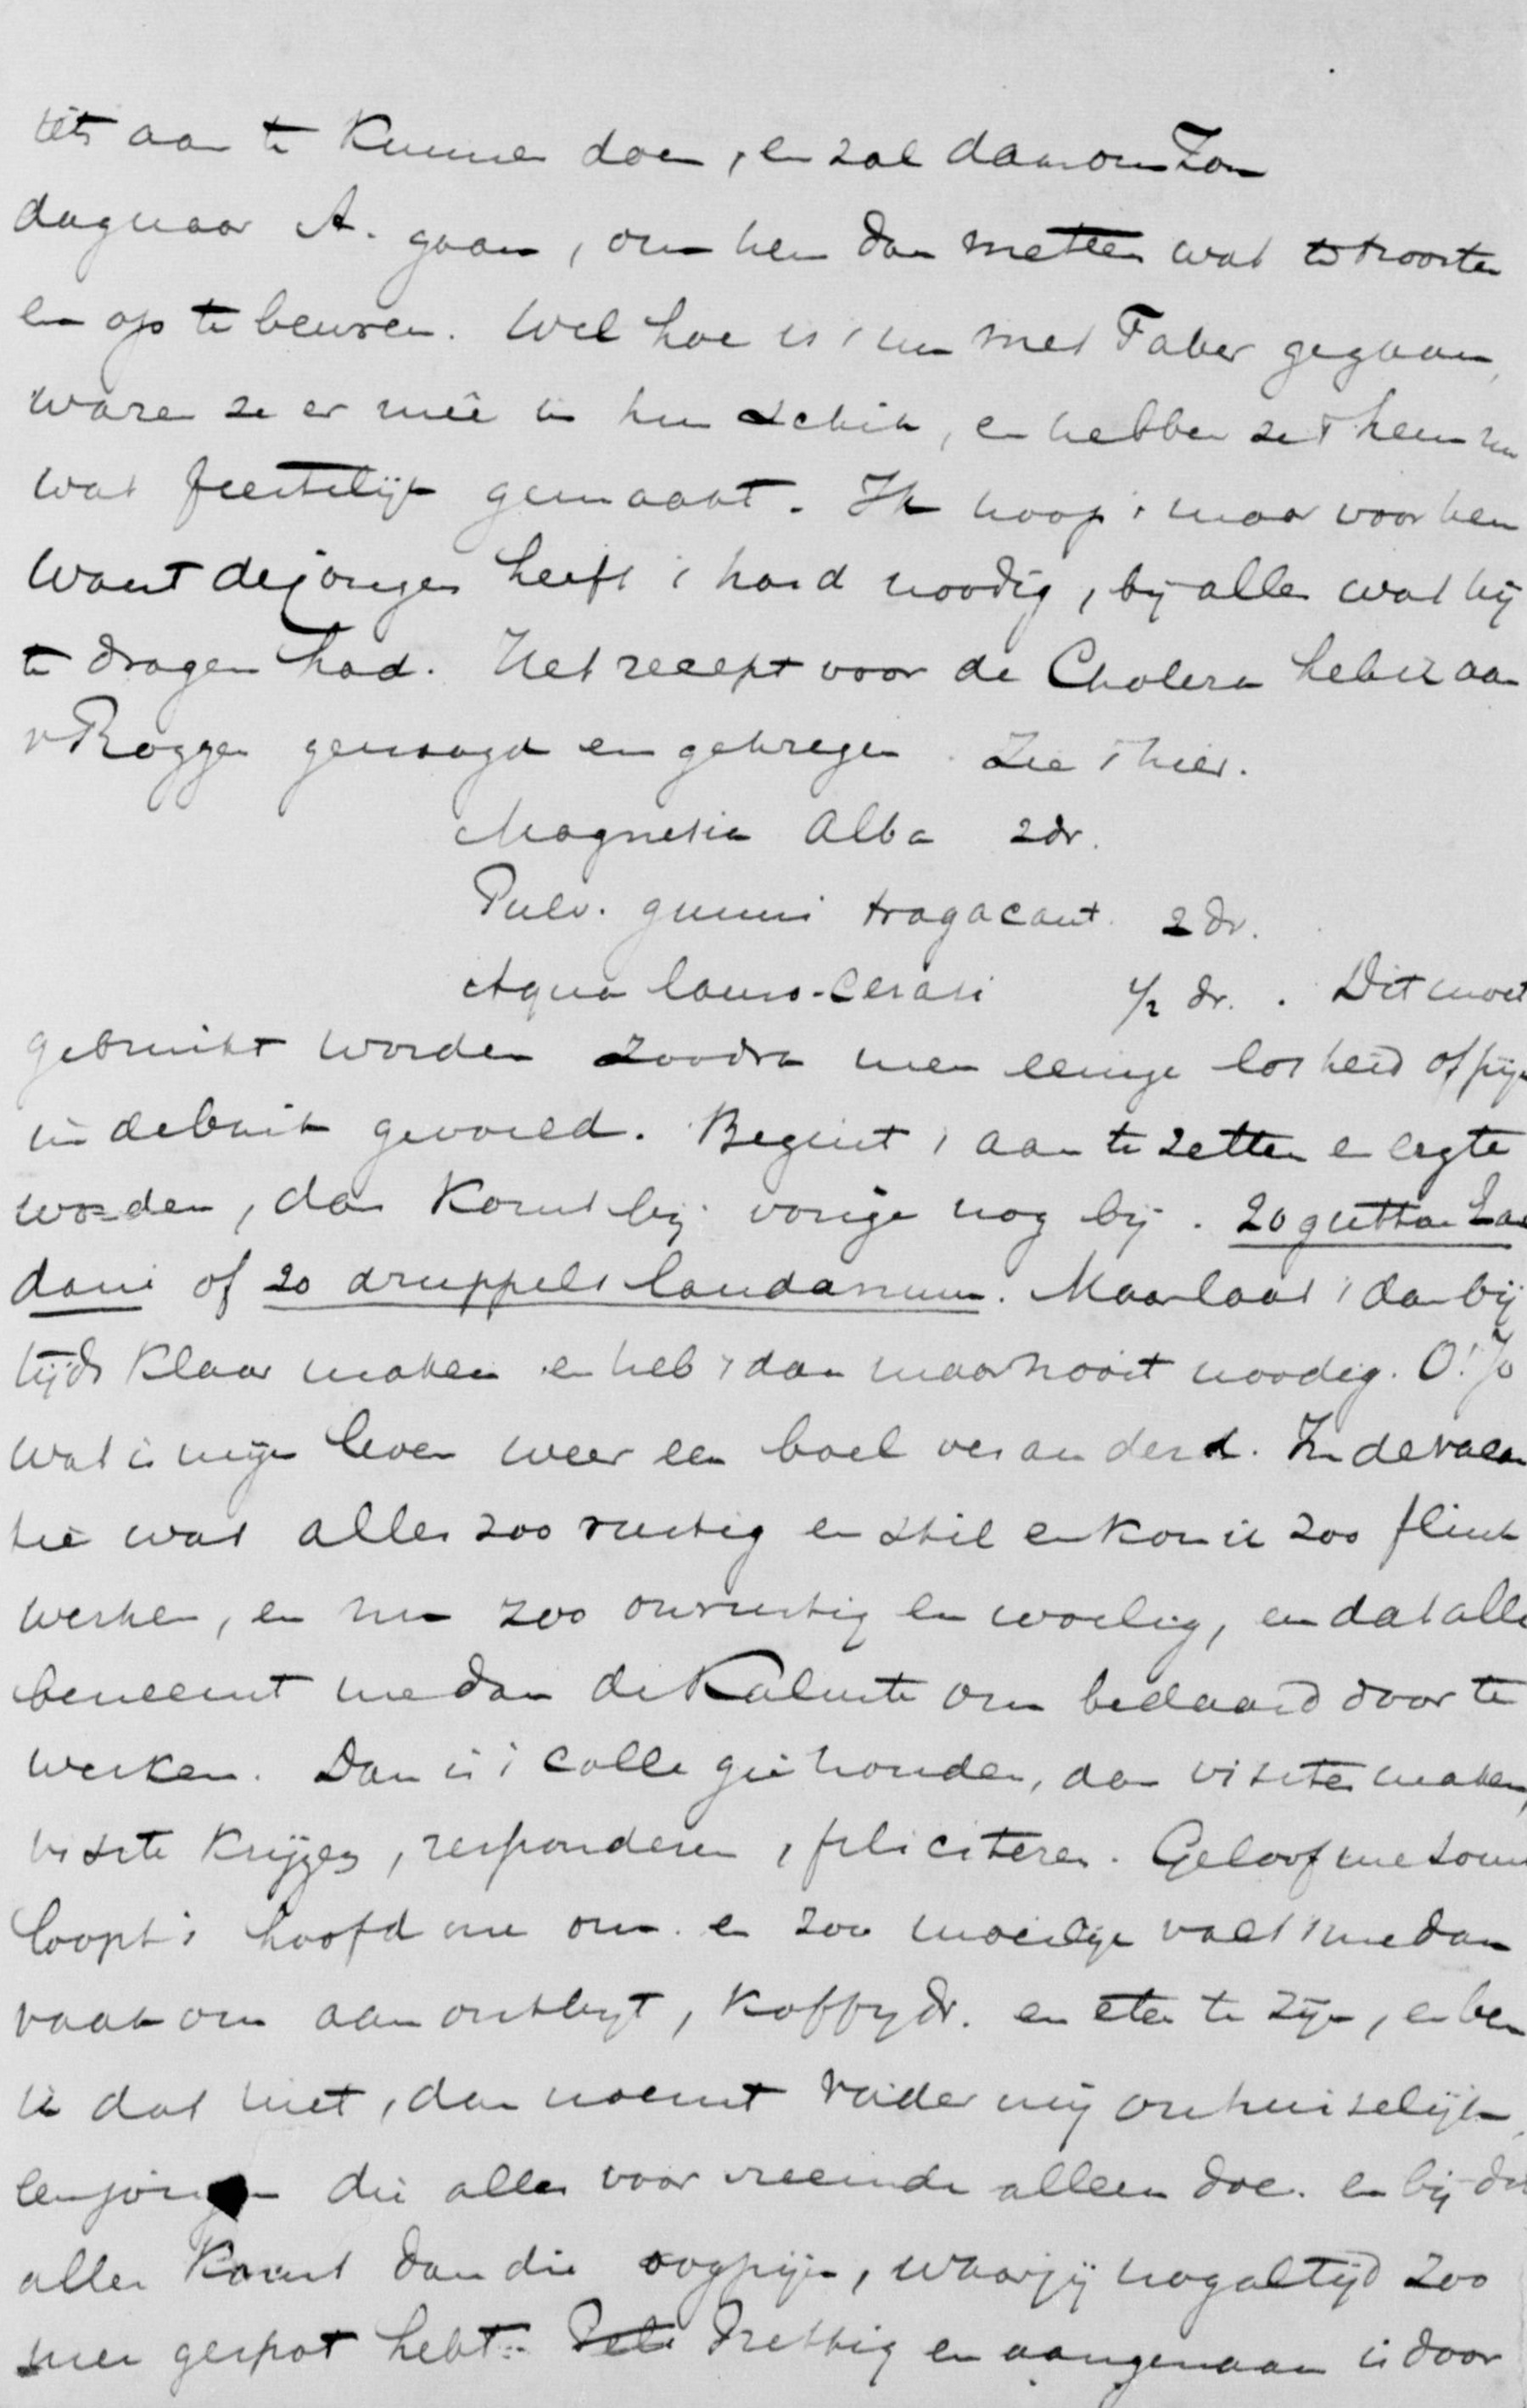 iets aan te kunnen doen, en zal daarom Zon
dag naar A. gaan, om hen dan metteen wat te troosten
en op te beuren. Wel hoe is 't nu met Faber gegaan,
waren ze er meê in hun schik, en hebben ze 't hem nu
wat feestelijk gemaakt. Ik hoop 't maar voor hem
want de jongen heeft 't hard noodig, bij alles wat hij
te dragen had. Het recept voor de Cholera heb ik aan
v Rogge gevraagd en gekregen. Zie 't hier.
Magnesia Alba 2 dr.
Pulv. gummi tragacant. 2 dr.
Aqua lauro-Cerasi ½ dr. . Dit moet
gebruikt worden zoodra men eenige losheid of pijn
in de buik gevoeld. Begint 't aan te zetten en erg te
worden, dan komt bij 't vorige nog bij. 20 guttae Lau
dani of 20 druppels laudanum. Maar laat 't dan bij
tijds klaar maken en heb 't dan maar nooit noodig. O! Jo
wat is mijn leven weer een boel veranderd. In de vacan
tie was alles zoo rustig en stil en kon ik zoo flink
werken, en nu zoo onrustig en woelig, en dat alles
beneemt me dan de kalmte om bedaard door te
werken. Dan is 't collegie houden, dan visites maken,
visite krijgen, responderen, feliciteren. Geloof me soms
loopt 't hoofd me om. en zoo moeilijk valt 't me dan
vaak om aan ontbijt, koffydr. en eten te zijn, en ben
ik dat niet, dan noemt Vader mij onhuiselijk,
een jongen die alles voor vreemde alleen doe. en bij dit
alles komt dan die oogpijn, waar jij nog altijd zoo
mee gespot hebt. Prettig en aangenaam is door